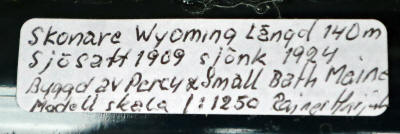 Skonare Wyoming Längd 140m
Sjösatt 1909 sjönk 1924
Byggd av Percy & Small Bath Maine
Modell skala 1:1250 Rainer